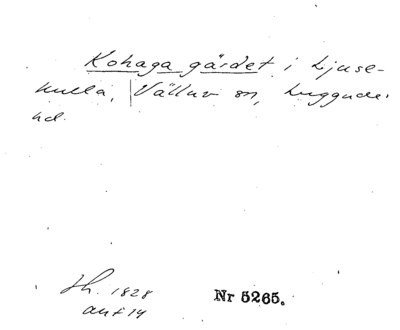 Kohaga gärdet i Ljuse-
kulla, Välluv sn, Luggude
hd.
Sh. 1828
akt 14
Nr 5265.